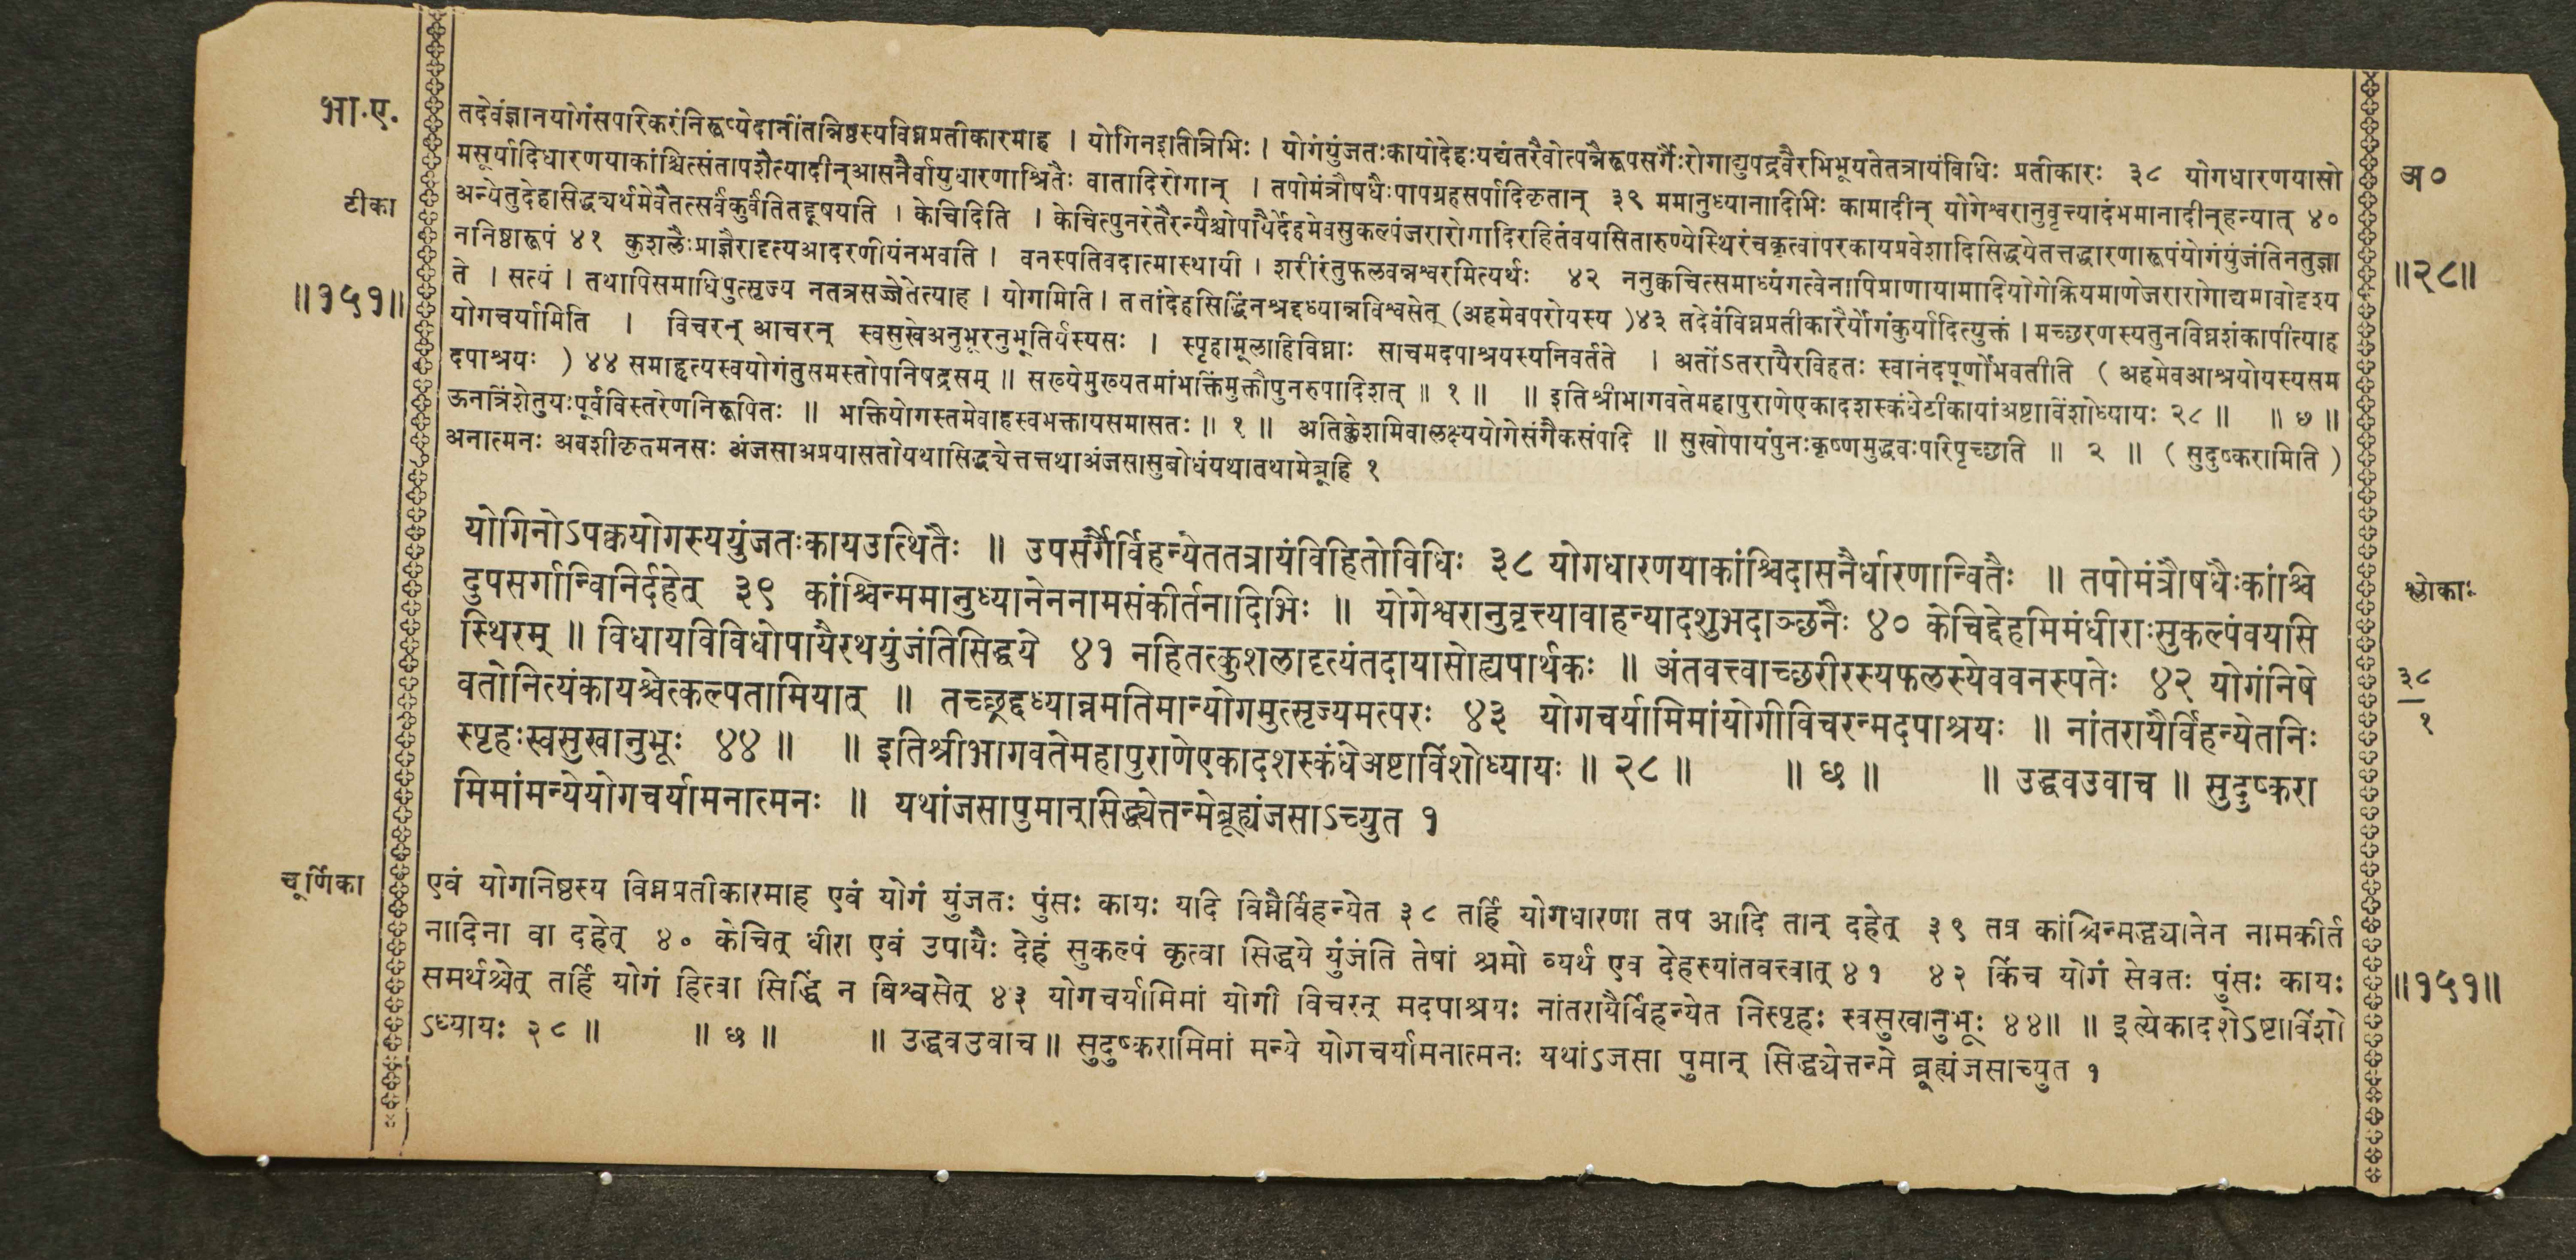 भा.ए.
तदेवंज्ञानयोगंसपरिकरंनिरूप्येदानींतन्निष्ठस्यविघ्नप्रतीकारमाह । योगिनइतित्रिभिः । योगंयुंजतःकायोदेहःयद्यंतरैवोत्पन्नैरूपसर्गैःरोगाद्युपद्रवैरभिभूयतेतत्रायंविधिः प्रतीकारः ३८ योगधारणयासो
मसूर्यादिधारणयाकांश्चित्संतापशैत्यादीन्आसनैर्वायुधारणाश्रितैः वातादिरोगान् । तपोमंत्रौषधैःपापग्रहसर्पादिकृतान् ३९ ममानुध्यानादिभिः कामादीन् योगेश्वरानुवृत्त्यादंभमानादीन्हन्यात् ४०
अ०
टीका
अन्येतुदेहसिद्ध्यर्थमेवैतत्सर्वंकुर्वंतितद्दूषयति । केचिदिति । केचित्पुनरेतैरन्यैश्चोपायैर्देहमेवसुकल्पंजरारोगादिरहितंवयसितारुण्येस्थिरंचकृत्वापरकायप्रवेशादिसिद्धयेतत्तद्धारणारूपंयोगंयुंजंतिनतुज्ञा
ननिष्ठारूपं ४१ कुशलैःप्राज्ञैरादृत्यआदरणीयंनभवति । वनस्पतिवदात्मास्थायी । शरीरंतुफलवन्नश्वरमित्यर्थः ४२ ननुक्वचित्समाध्यंगत्वेनापिप्राणायामादियोगेक्रियमाणेजरारागाद्यभावोदृश्य
॥२८॥
॥१५१॥
ते । सत्यं । तथापिसमाधिमुत्सृज्य नतत्रसज्जेतेत्याह । योगमिति । ततांदेहसिद्धिंनश्रद्दध्यान्नविश्वसेत् (अहमेवपरोयस्य )४३ तदेवंविघ्नप्रतीकारैर्योगंकुर्यादित्युक्तं । मच्छरणस्यतुनविघ्नशंकापीत्याह
योगचर्यामिति । विचरन् आचरन् स्वसुखेअनुभूरनुभूतिर्यस्यसः । स्पृहामूलाहिविघ्नाः साचमदपाश्रयस्यनिवर्तते । अतोंऽतरायैरविहतः स्वानंदपूर्णोभवतीति ( अहमेवआश्रयोयस्यसम
दपाश्रयः ) ४४ समाहृत्यस्वयोगंतुसमस्तोपनिषद्रसम् ॥ सख्येमुख्यतमांभक्तिंमुक्तौपुनरुपादिशत् ॥ १ ॥ ॥ इतिश्रीभागवतेमहापुराणेएकादशस्कंधेटीकायांअष्टाविंशोध्यायः २८ ॥ ॥ छ ॥
ऊनत्रिंशेतुयःपूर्वंविस्तरेणनिरूपितः ॥ भक्तियोगस्तमेवाहस्वभक्तायसमासतः ॥ १ ॥ अतिक्लेशमिवालक्ष्ययोगेसंगैकसंपदि ॥ सुखोपायंपुनःकृष्णमुद्धवःपरिपृच्छति ॥ २ ॥ ( सुदुष्करामिति )
अनात्मनः अवशीकृतमनसः अंजसाअप्रयासतोयथासिद्ध्येत्तत्तथाअंजसासुबोधंयथातथामेब्रूहि १
योगिनोऽपक्वयोगस्ययुंजतःकायउत्थितैः ॥ उपसर्गैर्विहन्येततत्रायंविहितोविधिः ३८ योगधारणयाकांश्चिदासनैर्धारणान्वितैः ॥ तपोमंत्रौषधैःकांश्चि
दुपसर्गान्विनिर्दहेत् ३९ कांश्चिन्ममानुध्यानेननामसंकीर्तनादिभिः ॥ योगेश्वरानुवृत्त्यावाहन्यादशुभदाञ्छनैः ४० केचिद्देहमिमंधीराःसुकल्पंवयसि
श्लोकाः
स्थिरम् ॥ विधायविविधोपायैरथयुंजंतिसिद्धये ४१ नहितत्कुशलादृत्यंतदायासोह्यपार्थकः ॥ अंतवत्त्वाच्छरीरस्यफलस्येववनस्पतेः ४२ योगंनिषे
३८
वतोनित्यंकायश्चेत्कल्पतामियात् ॥ तच्छ्रद्दध्यान्नमतिमान्योगमुत्सृज्यमत्परः ४३ योगचर्यामिमांयोगीविचरन्मदपाश्रयः ॥ नांतरायैर्विहन्येतनिः
१
स्पृहःस्वसुखानुभूः ४४ ॥ ॥ इतिश्रीभागवतेमहापुराणेएकादशस्कंधेअष्टाविंशोध्यायः ॥ २८ ॥ ॥ छ ॥ ॥ उद्धवउवाच ॥ सुदुष्करा
मिमांमन्येयोगचर्यामनात्मनः ॥ यथांजसापुमान्सिद्ध्येत्तन्मेब्रूह्यंजसाऽच्युत १
चूर्णिका
एवं योगनिष्ठस्य विघ्नप्रतीकारमाह एवं योगं युंजतः पुंसः कायः यदि विघ्नैर्विहन्येत ३८ तर्हि योगधारणा तप आदि तान् दहेत् ३९ तत्र कांश्चिन्मद्ध्यानेन नामकीर्त
नादिना वा दहेत् ४० केचित् धीरा एवं उपायैः देहं सुकल्पं कृत्वा सिद्धये युंजंति तेषां श्रमो व्यर्थ एव देहस्यांतवत्त्वात् ४१ ४२ किंच योगं सेवतः पुंसः कायः
समर्थश्चेत् तर्हि योगं हित्वा सिद्धिं न विश्वसेत् ४३ योगचर्यामिमां योगी विचरन् मदपाश्रयः नांतरायैर्विहन्येत निस्पृहः स्वसुखानुभूः ४४॥ ॥ इत्येकादशेऽष्टाविंशो
॥१५१॥
ऽध्यायः २८ ॥ ॥ छ ॥ ॥ उद्धवउवाच ॥ सुदुष्करामिमां मन्ये योगचर्यामनात्मनः यथांऽजसा पुमान् सिद्ध्येत्तन्मे ब्रूह्यंजसाच्युत १